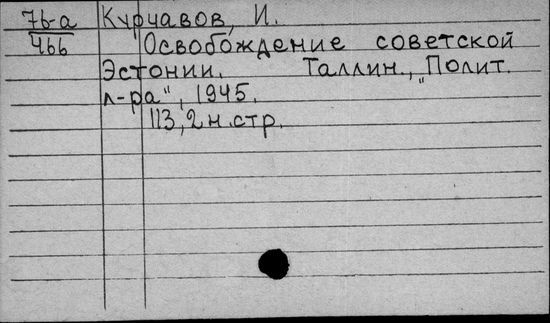 76-а Курчавов, И.
466 Освобождение советской
Эстонии. Таллин., „Полит.
л-ра", 1945.
113, 2 н. стр.